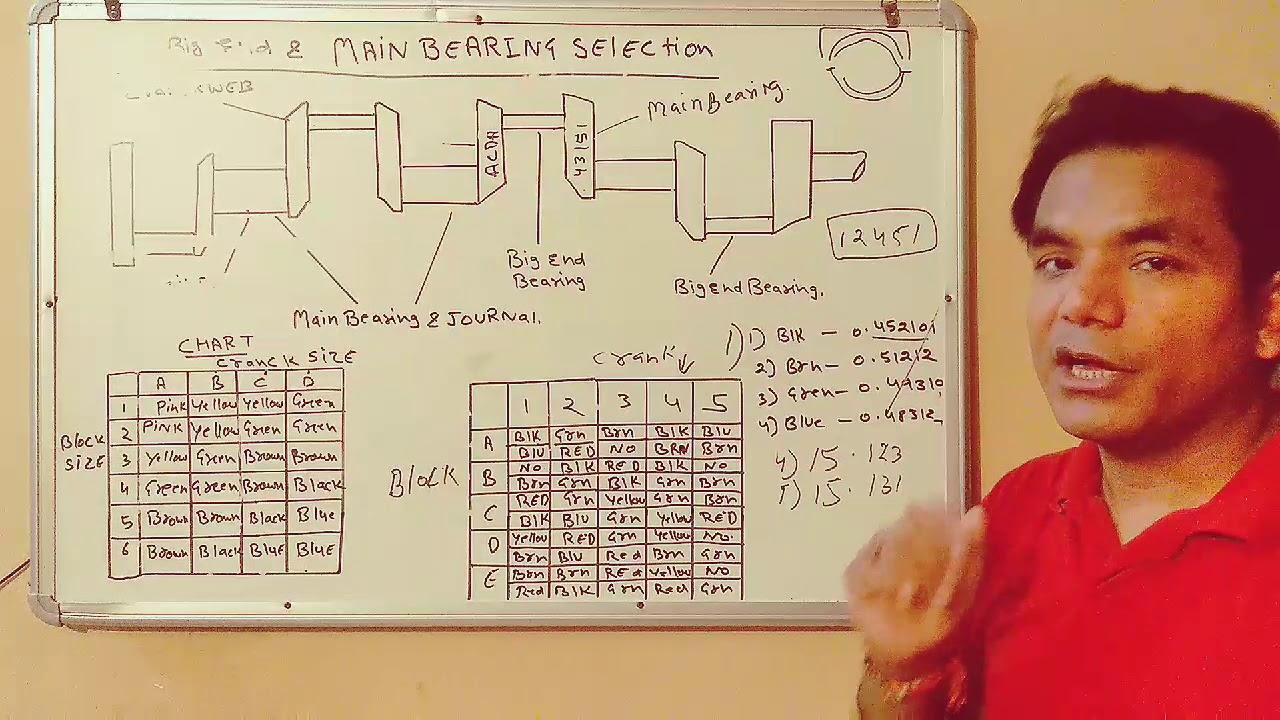 Big End & MAIN BEARING SELECTION
WEB
Main Bearing.
ACDA
43151
12451
Big End
Bearing
Big End Bearing.
Main Bearing & JOURNAL.
CHART
CRANCK SIZE
A B C D
1 Pink Yellow Yellow Green
2 PINK Yellow Green Green
3 Yellow Green Brown Brown
4 Green Green Brown Black
5 Brown Brown Black Blue
6 Brown Black BluE BluE
BLOCK
SIZE
Crank
1 2 3 4 5
A Blk Grn Brn Blk Blu
Blu RED NO BRN Brn
B NO Blk RED Blk NO
Brn Grn Blk Grn Brn
C RED Grn Yellow Grn Brn
Blk Blu Grn Yellow RED
D Yellow RED Grn Yellow NO.
Brn Blu Red Brn Grn
E Brn Brn REd Yellow NO
Red Blk Grn Red Grn
BLocK
1) 1) Blk -
2) Brn - 0.51212
3) Green -
4) Blue -
4) 15.123
5) 15.131